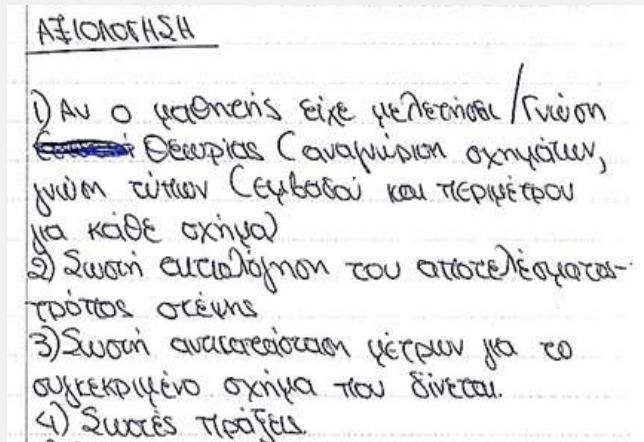 ΑΞΙΟΛΟΓΗΣΗ
1) Αν ο μαθητής είχε μελετήσει / Γνώση
Θεωρίας (αναγνώριση σχημάτων,
γνώση τύπων (εμβαδού και περιμέτρου
για κάθε σχήμα)
2) Σωστή αιτιολόγηση του αποτελέσματος-
τρόπος σκέψης
3) Σωστή αντικατάσταση μέτρων για το
συγκεκριμένο σχήμα που δίνεται.
4) Σωστές πράξεις.